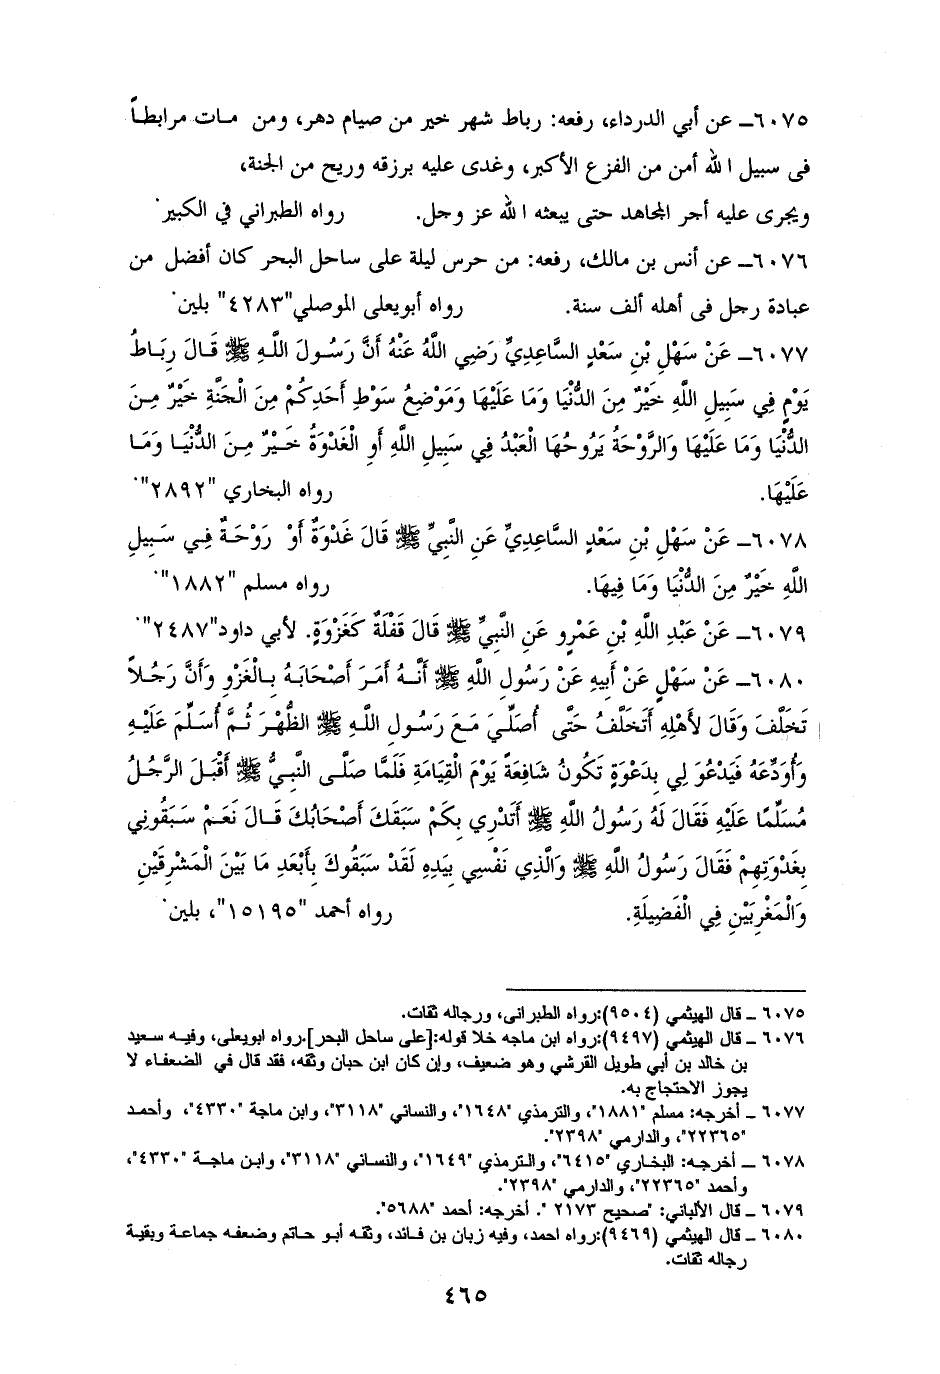 ٦٠٧٥ــ عن أبي الدرداء، رفعه: رباط شهر خير من صيام دهر، ومن مات مرابطاً
فى سبيل الله أمن من الفزع الأكبر، وغدى عليه برزقه وريح من الجنة،
ويجرى عليه أجر المجاهد حتى يبعثه الله عز وجل. رواه الطبراني في الكبير.
٦٠٧٦ــ عن أنس بن مالك، رفعه: من حرس ليلة على ساحل البحر كان أفضل من
عبادة رجل فى أهله ألف سنة. رواه أبويعلى الموصلي"٤٢٨٣" بلين.
٦٠٧٧ــ عَنْ سَهْلِ بْنِ سَعْدٍ السَّاعِدِيِّ رَضِي اللَّهُ عَنْهُ أَنَّ رَسُولَ اللَّهِ ﷺ قَالَ رِبَاطُ
يَوْمٍ فِي سَبِيلِ اللَّهِ خَيْرٌ مِنَ الدُّنْيَا وَمَا عَلَيْهَا وَمَوْضِعُ سَوْطِ أَحَدِكُمْ مِنَ الْجَنَّةِ خَيْرٌ مِنَ
الدُّنْيَا وَمَا عَلَيْهَا وَالرَّوْحَةُ يَرُوحُهَا الْعَبْدُ فِي سَبِيلِ اللَّهِ أَوِ الْغَدْوَةُ خَيْرٌ مِنَ الدُّنْيَا وَمَا
عَلَيْهَا. رواه البخاري "٢٨٩٢".
٦٠٧٨ــ عَنْ سَهْلِ بْنِ سَعْدٍ السَّاعِدِيِّ عَنِ النَّبِيِّ ﷺ قَالَ غَدْوَةٌ أَوْ رَوْحَةٌ فِي سَبِيلِ
اللَّهِ خَيْرٌ مِنَ الدُّنْيَا وَمَا فِيهَا. رواه مسلم "١٨٨٢".
٦٠٧٩ــ عَنْ عَبْدِ اللَّهِ بْنِ عَمْرٍو عَنِ النَّبِيِّ ﷺ قَالَ قَفْلَةٌ كَغَزْوَةٍ. لأبي داود"٢٤٨٧".
٦٠٨٠ــ عَنْ سَهْلٍ عَنْ أَبِيهِ عَنْ رَسُولِ اللَّهِ ﷺ أَنَّهُ أَمَرَ أَصْحَابَهُ بِالْغَزْوِ وَأَنَّ رَجُلاً
تَخَلَّفَ وَقَالَ لأَهْلِهِ أَتَخَلَّفُ حَتَّى أُصَلِّيَ مَعَ رَسُولِ اللَّهِ ﷺ الظُّهْرَ ثُمَّ أُسَلِّمَ عَلَيْهِ
وَأُوَدِّعَهُ فَيَدْعُوَ لِي بِدَعْوَةٍ تَكُونُ شَافِعَةً يَوْمَ الْقِيَامَةِ فَلَمَّا صَلَّى النَّبِيُّ ﷺ أَقْبَلَ الرَّجُلُ
مُسَلِّمًا عَلَيْهِ فَقَالَ لَهُ رَسُولُ اللَّهِ ﷺ أَتَدْرِي بِكَمْ سَبَقَكَ أَصْحَابُكَ قَالَ نَعَمْ سَبَقُونِي
بِغَدْوَتِهِمْ فَقَالَ رَسُولُ اللَّهِ ﷺ وَالَّذِي نَفْسِي بِيَدِهِ لَقَدْ سَبَقُوكَ بِأَبْعَدِ مَا بَيْنَ الْمَشْرِقَيْنِ
وَالْمَغْرِبَيْنِ فِي الْفَضِيلَةِ. رواه أحمد "١٥١٩٥"، بلين.
٦٠٧٥ ــ قال الهيثمي (٩٥٠٤):رواه الطبرانى، ورجاله ثقات.
٦٠٧٦ ــ قال الهيثمي (٩٤٩٧):رواه ابن ماجه خلا قوله:[على ساحل البحر].رواه ابويعلى، وفيه سعيد
بن خالد بن أبي طويل القرشي وهو ضعيف، وإن كان ابن حبان وثقه، فقد قال في الضعفاء لا
يجوز الاحتجاج به.
٦٠٧٧ ــ أخرجه: مسلم "١٨٨١"، والترمذي "١٦٤٨"، والنسائي "٣١١٨"، وابن ماجة "٤٣٣٠"، وأحمد
"٢٢٣٦٥"، والدارمي "٢٣٩٨".
٦٠٧٨ ــ أخرجه: البخاري "٦٤١٥"، والترمذي "١٦٤٩"، والنسائي "٣١١٨"، وابن ماجة "٤٣٣٠"،
وأحمد "٢٢٣٦٥"، والدارمي "٢٣٩٨".
٦٠٧٩ ــ قال الألباني: "صحيح ٢١٧٣ ". أخرجه: أحمد "٥٦٨٨".
٦٠٨٠ ــ قال الهيثمي (٩٤٦٩):رواه احمد، وفيه زبان بن فائد، وثقه أبو حاتم وضعفه جماعة وبقية
رجاله ثقات.
٤٦٥